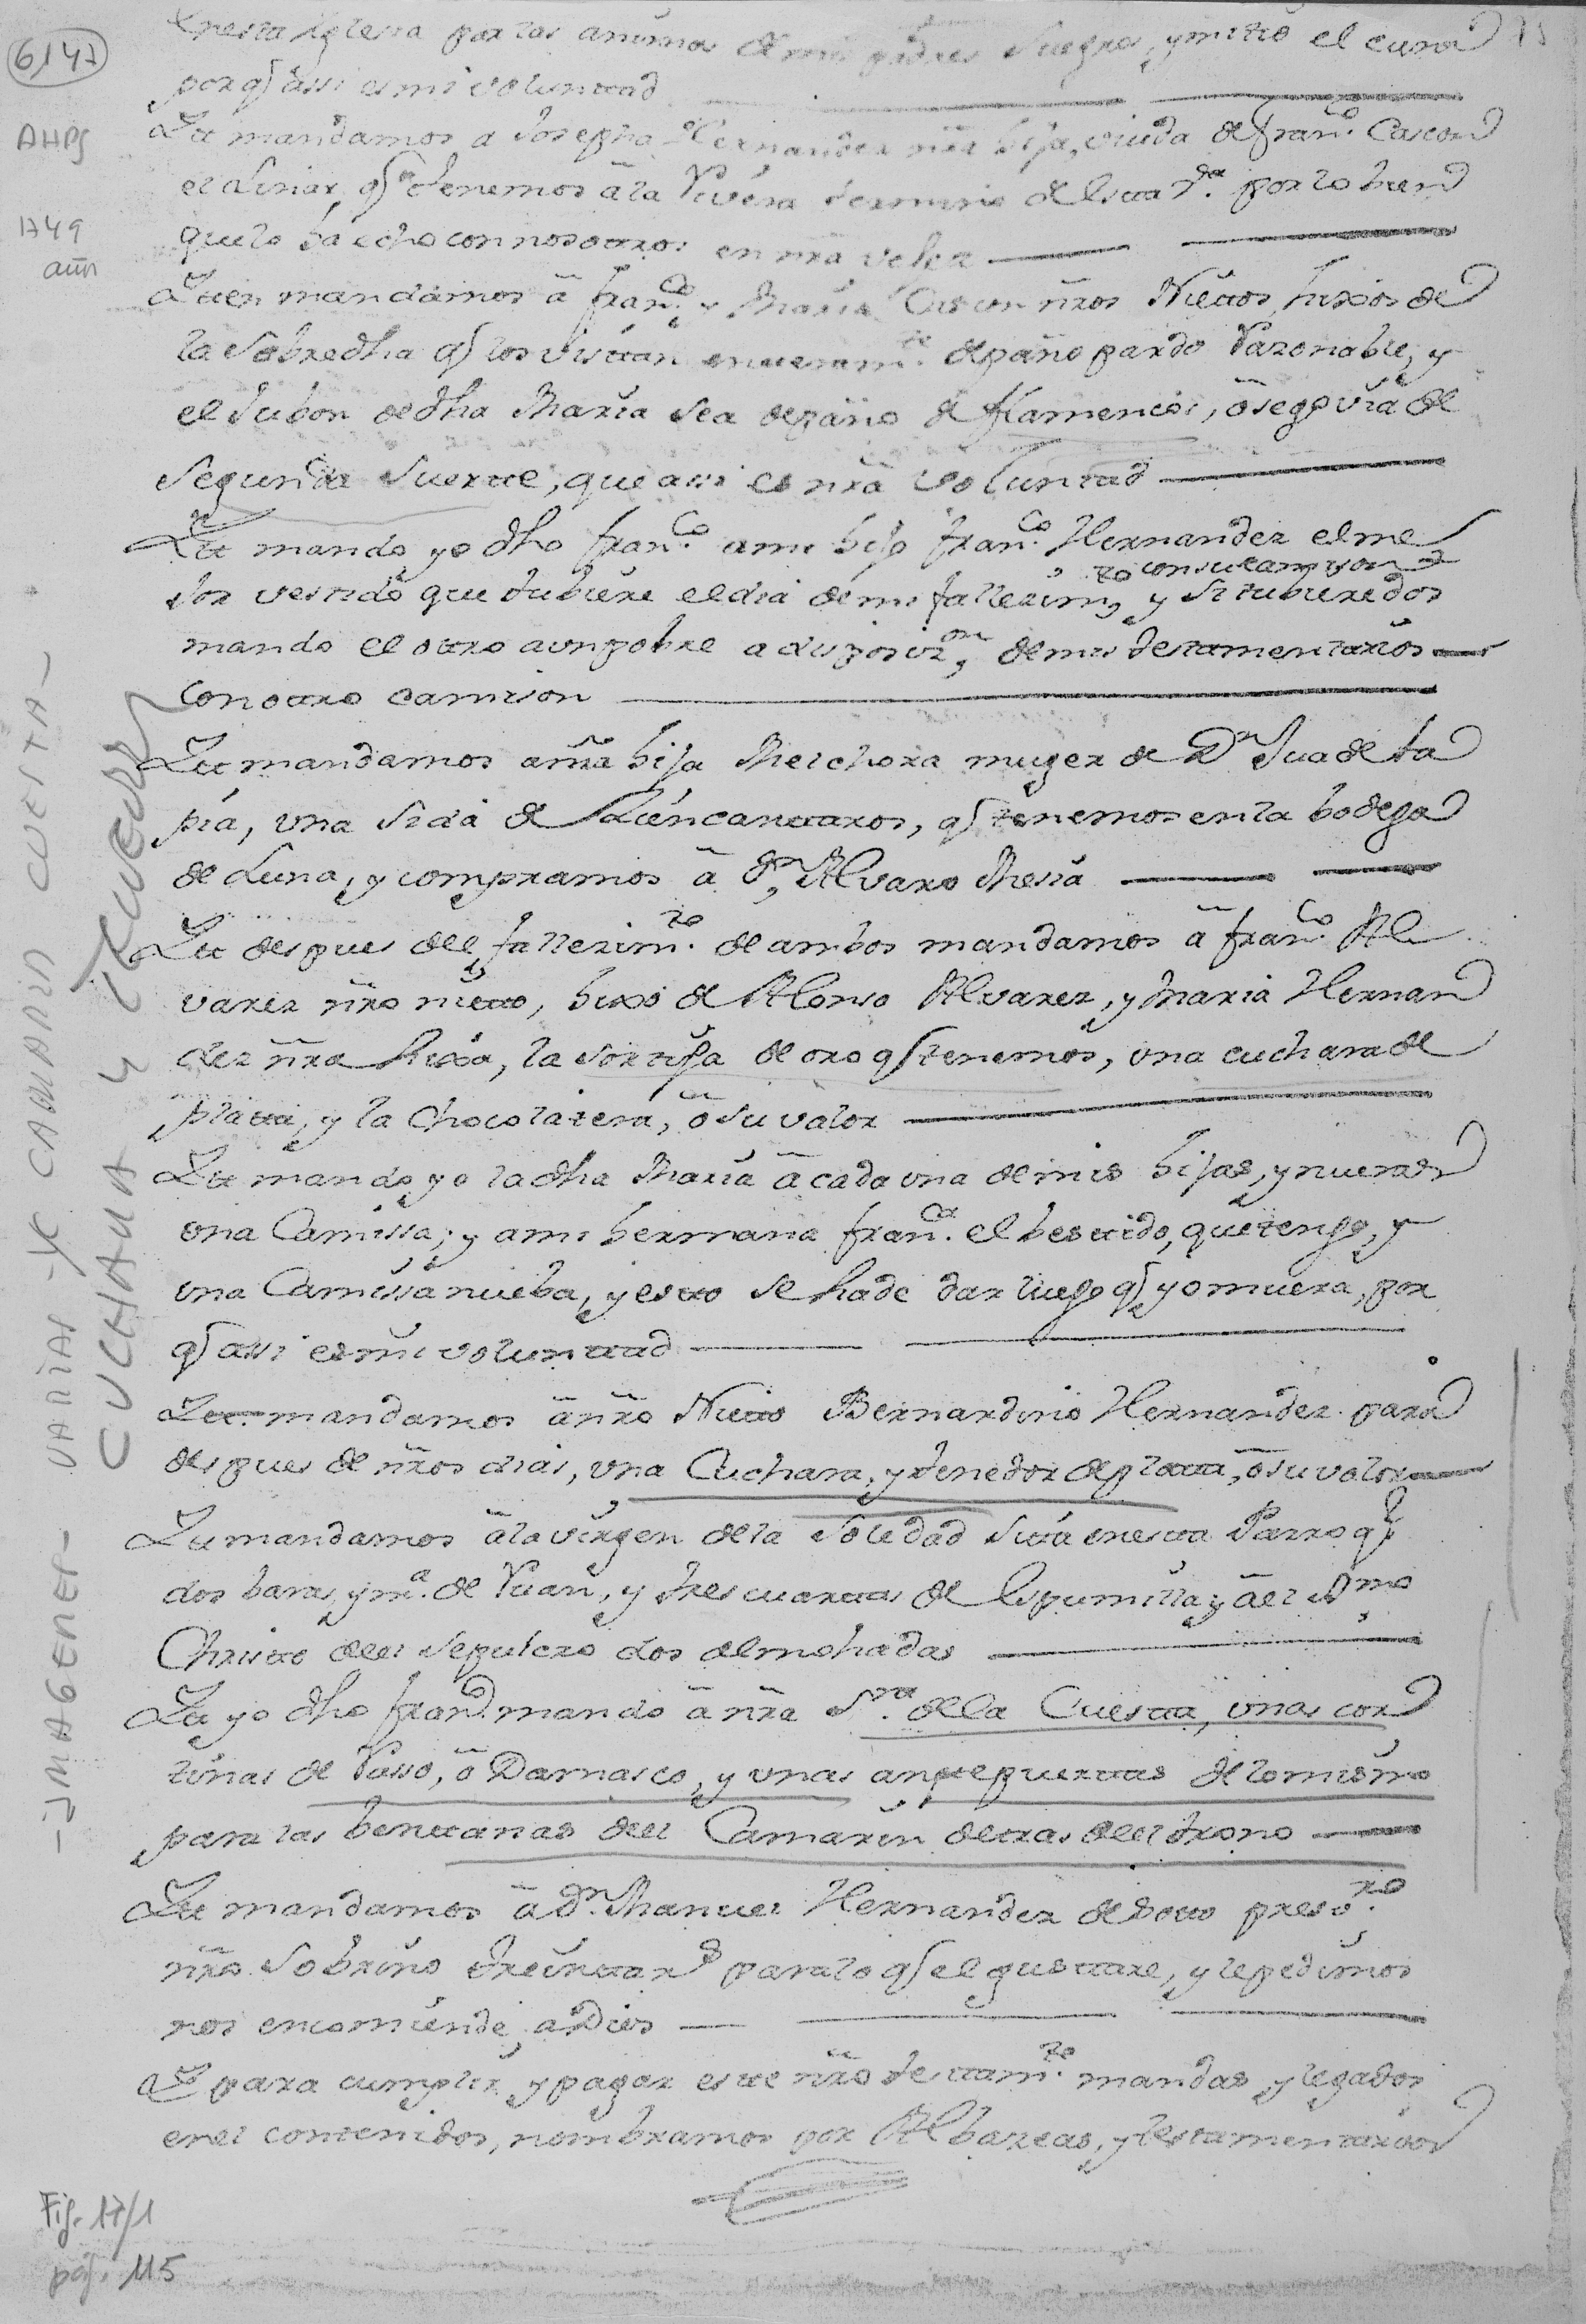 6147
AHPS
1749
aun
75
en esta Yglesia por las animas de mis padres Suegros, y mitio el cura
porq assi es mi voluntad
Itt mandamos a Josepha Hernandez nrã hija, viuda de franco. Cascon
el Linar, q tenemos â la Rivera termino de esta va. por lo bien
que lo ha echo con nosottros en nrã vehez
Itten mandamos â franco. y Maria Cascon nr̃os Niettos, hixos de
la Sobredha q los visttan enteramte. de paño pardo Razonable, y
el Jubon de dha Maria sea de paño de flamencos, ô segovia de
segunda Suertte, que assi es nrã voluntad
Itt mando yo dho franco. a mi hijo franco. Hernandez el me
to con su camison
Jor vestido que tubiere el dia de mi fallezim, y si tubiere dos
mando el ottro a un pobre a disposizon, de mis testamentarios
con ottro camison
Itt mandamos a nr̃a hija Melchora muger de Dn Jua de ta
pia, una sida de Zien canttaros, q tenemos en la bodega
de Luna, y compramos â Dn, Alvaro Mesia
Itt despues del fallezimto. de ambos mandamos â franco. Al
varez nr̃o nietto, hixo de Alonso Alvarez, y Maria Hernan
dez nr̃a hixa, la sortija de oro q tenemos, una cuchara de
platta, y la Chocolatera, ô su valor
Itt mando yo la dha Maria â cada una de mis hijas, y nueras
una Camissa; y a mi hermana franca. el besttido, que tengo, y
una Camissa nueba, y estto se ha de dar luego q yo muera, por
q assi es mi volunttad
Itt mandamos â nr̃o Nietto Bernardino Hernandez para
despues de nr̃os dias, una Cuchara, y tenedor de platta, ô su valor
Itt mandamos â la virgen de la Soledad sitta en estta Parroqa
dos baras, y ma. de Ruan, y tres cuarttas de Espumilla, y âel Smo
Christto del sepulcro dos almohadas
Itt yo dho franco. mando â nrã Sra. de la Cuestta, unas cor
tinas de Raso, ô Damasco, y unas antepuerttas de lo mismo
para las benttanas del Camarin detras del trono
Itt mandamos â Dn. Manuel Hernandez de Sotto presvro.
nr̃o Sobrino treintta rs para lo q el gusttare, y le pedimos
nos encomiende, a Dios
Y para cumplir, y pagar estte nr̃o testtamto. mandas y legados
en el contenidos, nombramos por Albazeas, y testamentarios
-IMAGENES- VARIAS -YC CAMARIN CUESTA-
CUCHARA y TENEDOR
Fig. 17/1
pág. 115